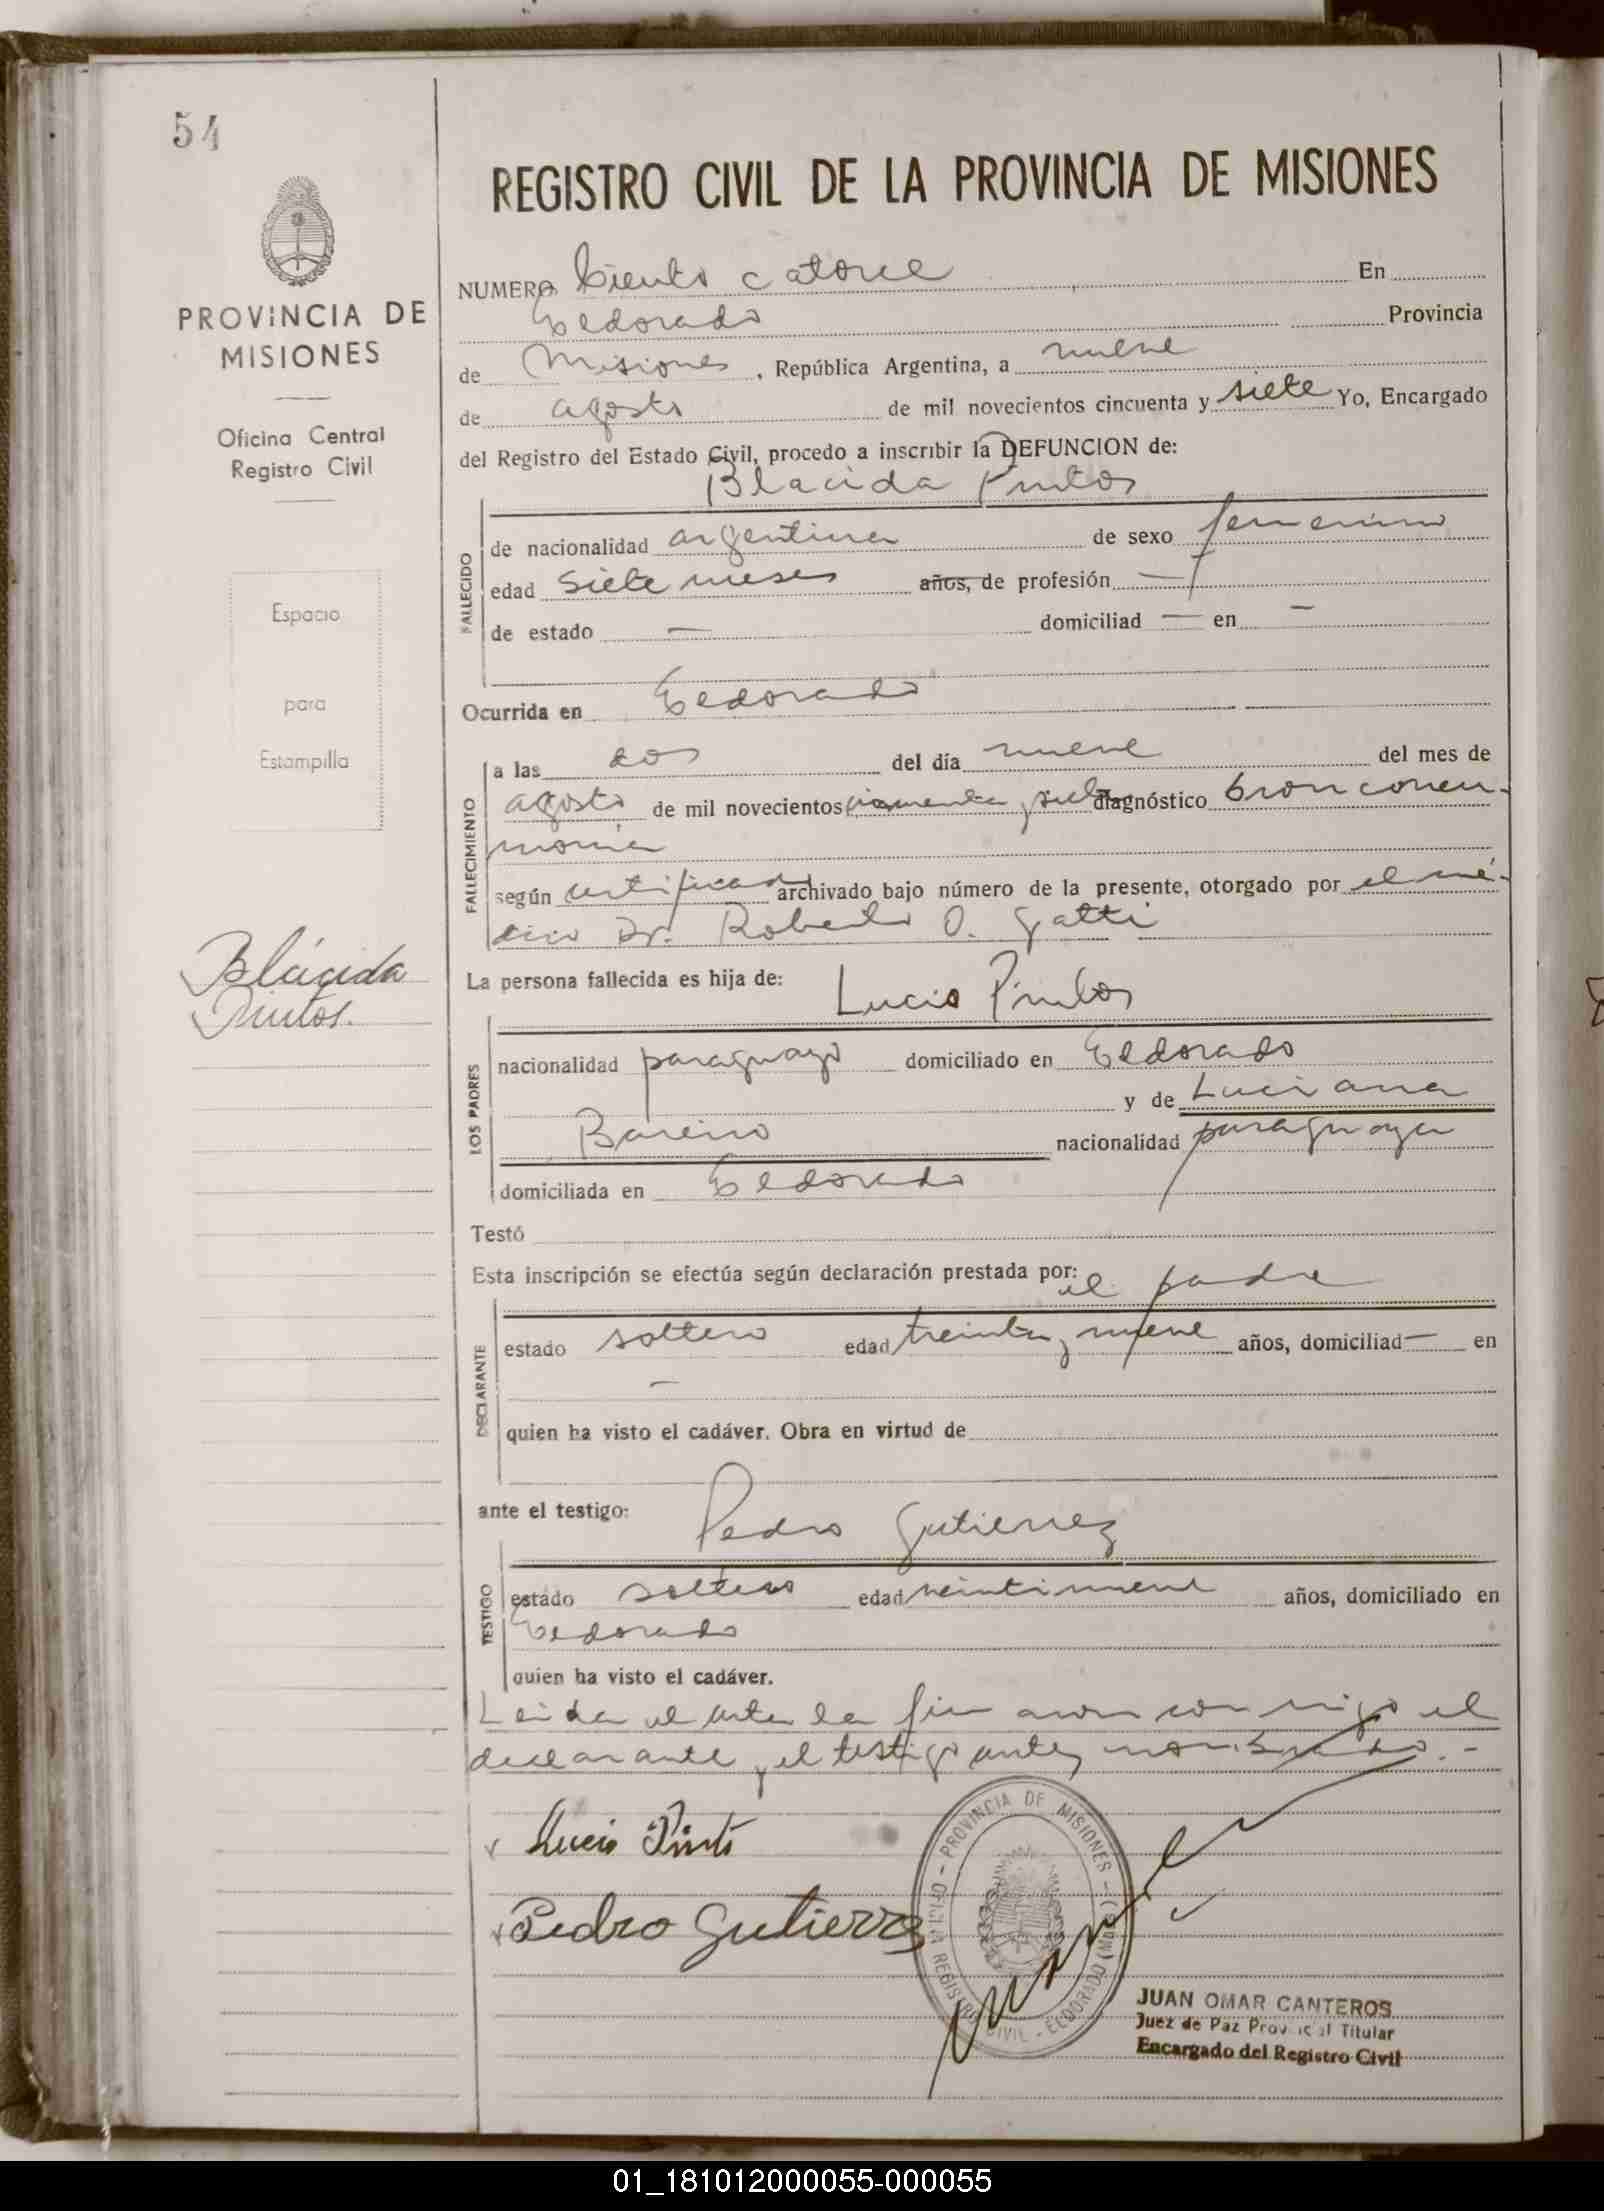 54
PROVINCIA DE
MISIONES
Oficina Central
Registro Civil
Espacio
para
Estampilla
Blácida
Pintos.
REGISTRO CIVIL DE LA PROVINCIA DE MISIONES
NUMERO Ciento catorce En
Eldorado Provincia
de Misiones, República Argentina, a nueve
de agosto de mil novecientos cincuenta y siete Yo, Encargado
del Registro del Estado Civil, procedo a inscribir la DEFUNCION de:
Blacida Pintos
FALLECIDO
de nacionalidad argentina de sexo femenino
edad siete meses años, de profesión —
de estado — domiciliad — en —
Ocurrida en Eldorado
FALLECIMIENTO
a las dos del día nueve del mes de
agosto de mil novecientos cincuenta y siete diagnóstico bronconeu-
monía
según certificado archivado bajo número de la presente, otorgado por el mé-
dico Dr. Roberto O. Gatti
La persona fallecida es hija de: Lucio Pintos
LOS PADRES
nacionalidad paraguayo domiciliado en Eldorado
y de Luciana
Bareiro nacionalidad paraguaya
domiciliada en Eldorado
Testó
Esta inscripción se efectúa según declaración prestada por: el padre
DECLARANTE
estado soltero edad treinta y nueve años, domiciliad — en
—
quien ha visto el cadáver. Obra en virtud de
ante el testigo: Pedro Gutierrez
TESTIGO
estado soltero edad veintinueve años, domiciliado en
Eldorado
quien ha visto el cadáver.
Leida el acta la firmaron conmigo el
declarante y el testigo antes nombrado.-
Lucio Pinto
Pedro Gutierrez
PROVINCIA DE MISIONES - OFICINA REGISTRO CIVIL - ELDORADO
JUAN OMAR CANTEROS
Juez de Paz Provincial Titular
Encargado del Registro Civil
01_181012000055-000055